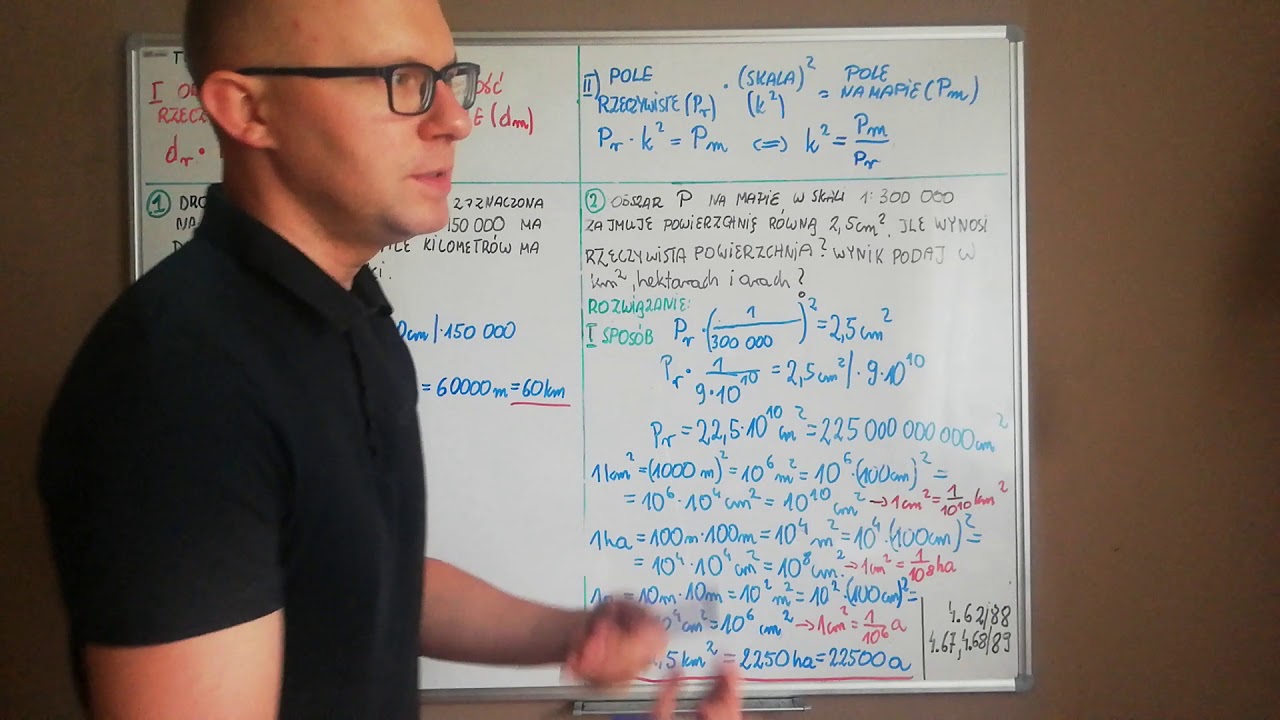 I
RZECZ
E (dm)
dr ·
II) POLE RZECZYWISTE (Pr) · (SKALA)² (k²) = POLE NA MAPIE (Pm)
Pr · k² = Pm <=> k² = Pm/Pr
1 DRO ZNACZONA
NA 150 000 MA
KILOMETRÓW MA
0cm | · 150 000
= 60000 m = 60 km
2 OBSZAR P NA MAPIE W SKALI 1:300 000
ZAJMUJE POWIERZCHNIĘ RÓWNĄ 2,5cm². ILE WYNOSI
RZECZYWISTA POWIERZCHNIA? WYNIK PODAJ W
km², hektarach i arach?
ROZWIĄZANIE:
I SPOSÓB Pr · (1/300 000)² = 2,5cm²
Pr · 1/9·10¹⁰ = 2,5cm² | · 9·10¹⁰
Pr = 22,5·10¹⁰ cm² = 225 000 000 000 cm²
1km² = (1000 m)² = 10⁶ m² = 10⁶·(100cm)² =
= 10⁶·10⁴ cm² = 10¹⁰ cm² → 1cm² = 1/10¹⁰ km²
1ha = 100m·100m = 10⁴ m² = 10⁴·(100cm)² =
= 10⁴·10⁴ cm² = 10⁸ cm² → 1cm² = 1/10⁸ ha
= 10m·10m = 10² m² = 10²·(100cm)² =
⁴ cm² = 10⁶ cm² → 1cm² = 1/10⁶ a
,5 km² = 2250 ha = 22500 a
4.62/88
4.67, 4.68/89